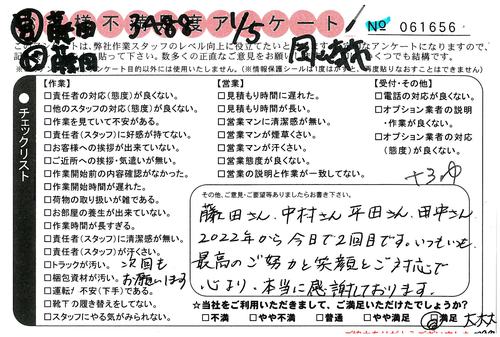 藤田 3A88 1/5
お客様不満足度アンケート
№ 061656
このアンケートは、弊社作業スタッフのレベル向上に役立てたいと
アンケート目的以外には使用いたしません。(※情報保護シールは1度はがすと、再度貼りなおすことはできません)
チェックリスト
【作業】
□責任者の対応(態度)が良くない。
□他のスタッフの対応(態度)が良くない。
□作業を見ていて不安がある。
□責任者(スタッフ)に好感が持てない。
□お客様への挨拶が出来ていない。
□ご近所への挨拶・気遣いが無い。
□作業開始前の内容確認がなかった。
□作業開始時間が遅れた。
□荷物の取り扱いが雑である。
□お部屋の養生が出来ていない。
□作業時間が長すぎる。
□責任者(スタッフ)に清潔感が無い。
□責任者(スタッフ)が汗くさい。
□トラックが汚い。
□梱包資材が汚い。
□運転が不安(下手)である。
□靴下の履き替えをしてない。
□スタッフにやる気がみられない。
次回も
お願いします
【営業】
□見積もり時間に遅れた。
□見積もり時間が長い。
□営業マンに清潔感が無い。
□営業マンが煙草くさい。
□営業マンが汗くさい。
□営業態度が良くない。
□営業の説明と作業内容が違った。
【受付・その他】
□電話の対応が良くない。
□オプション業者の説明
・作業が良くない。
□オプション業者の対応
(態度)が良くない。
その他、ご意見・ご要望等ありましたらお書き下さい。
藤田さん、中村さん、平田さん、田中さん
2022年から今日で2回目です。いつもいつも
最高のご努力と笑顔とご対応で
心より、本当に感謝しております。
☆当社をご利用いただきまして、ご満足いただけたでしょうか?
□不満 □やや不満 □普通 □やや満足 □満足 大大大